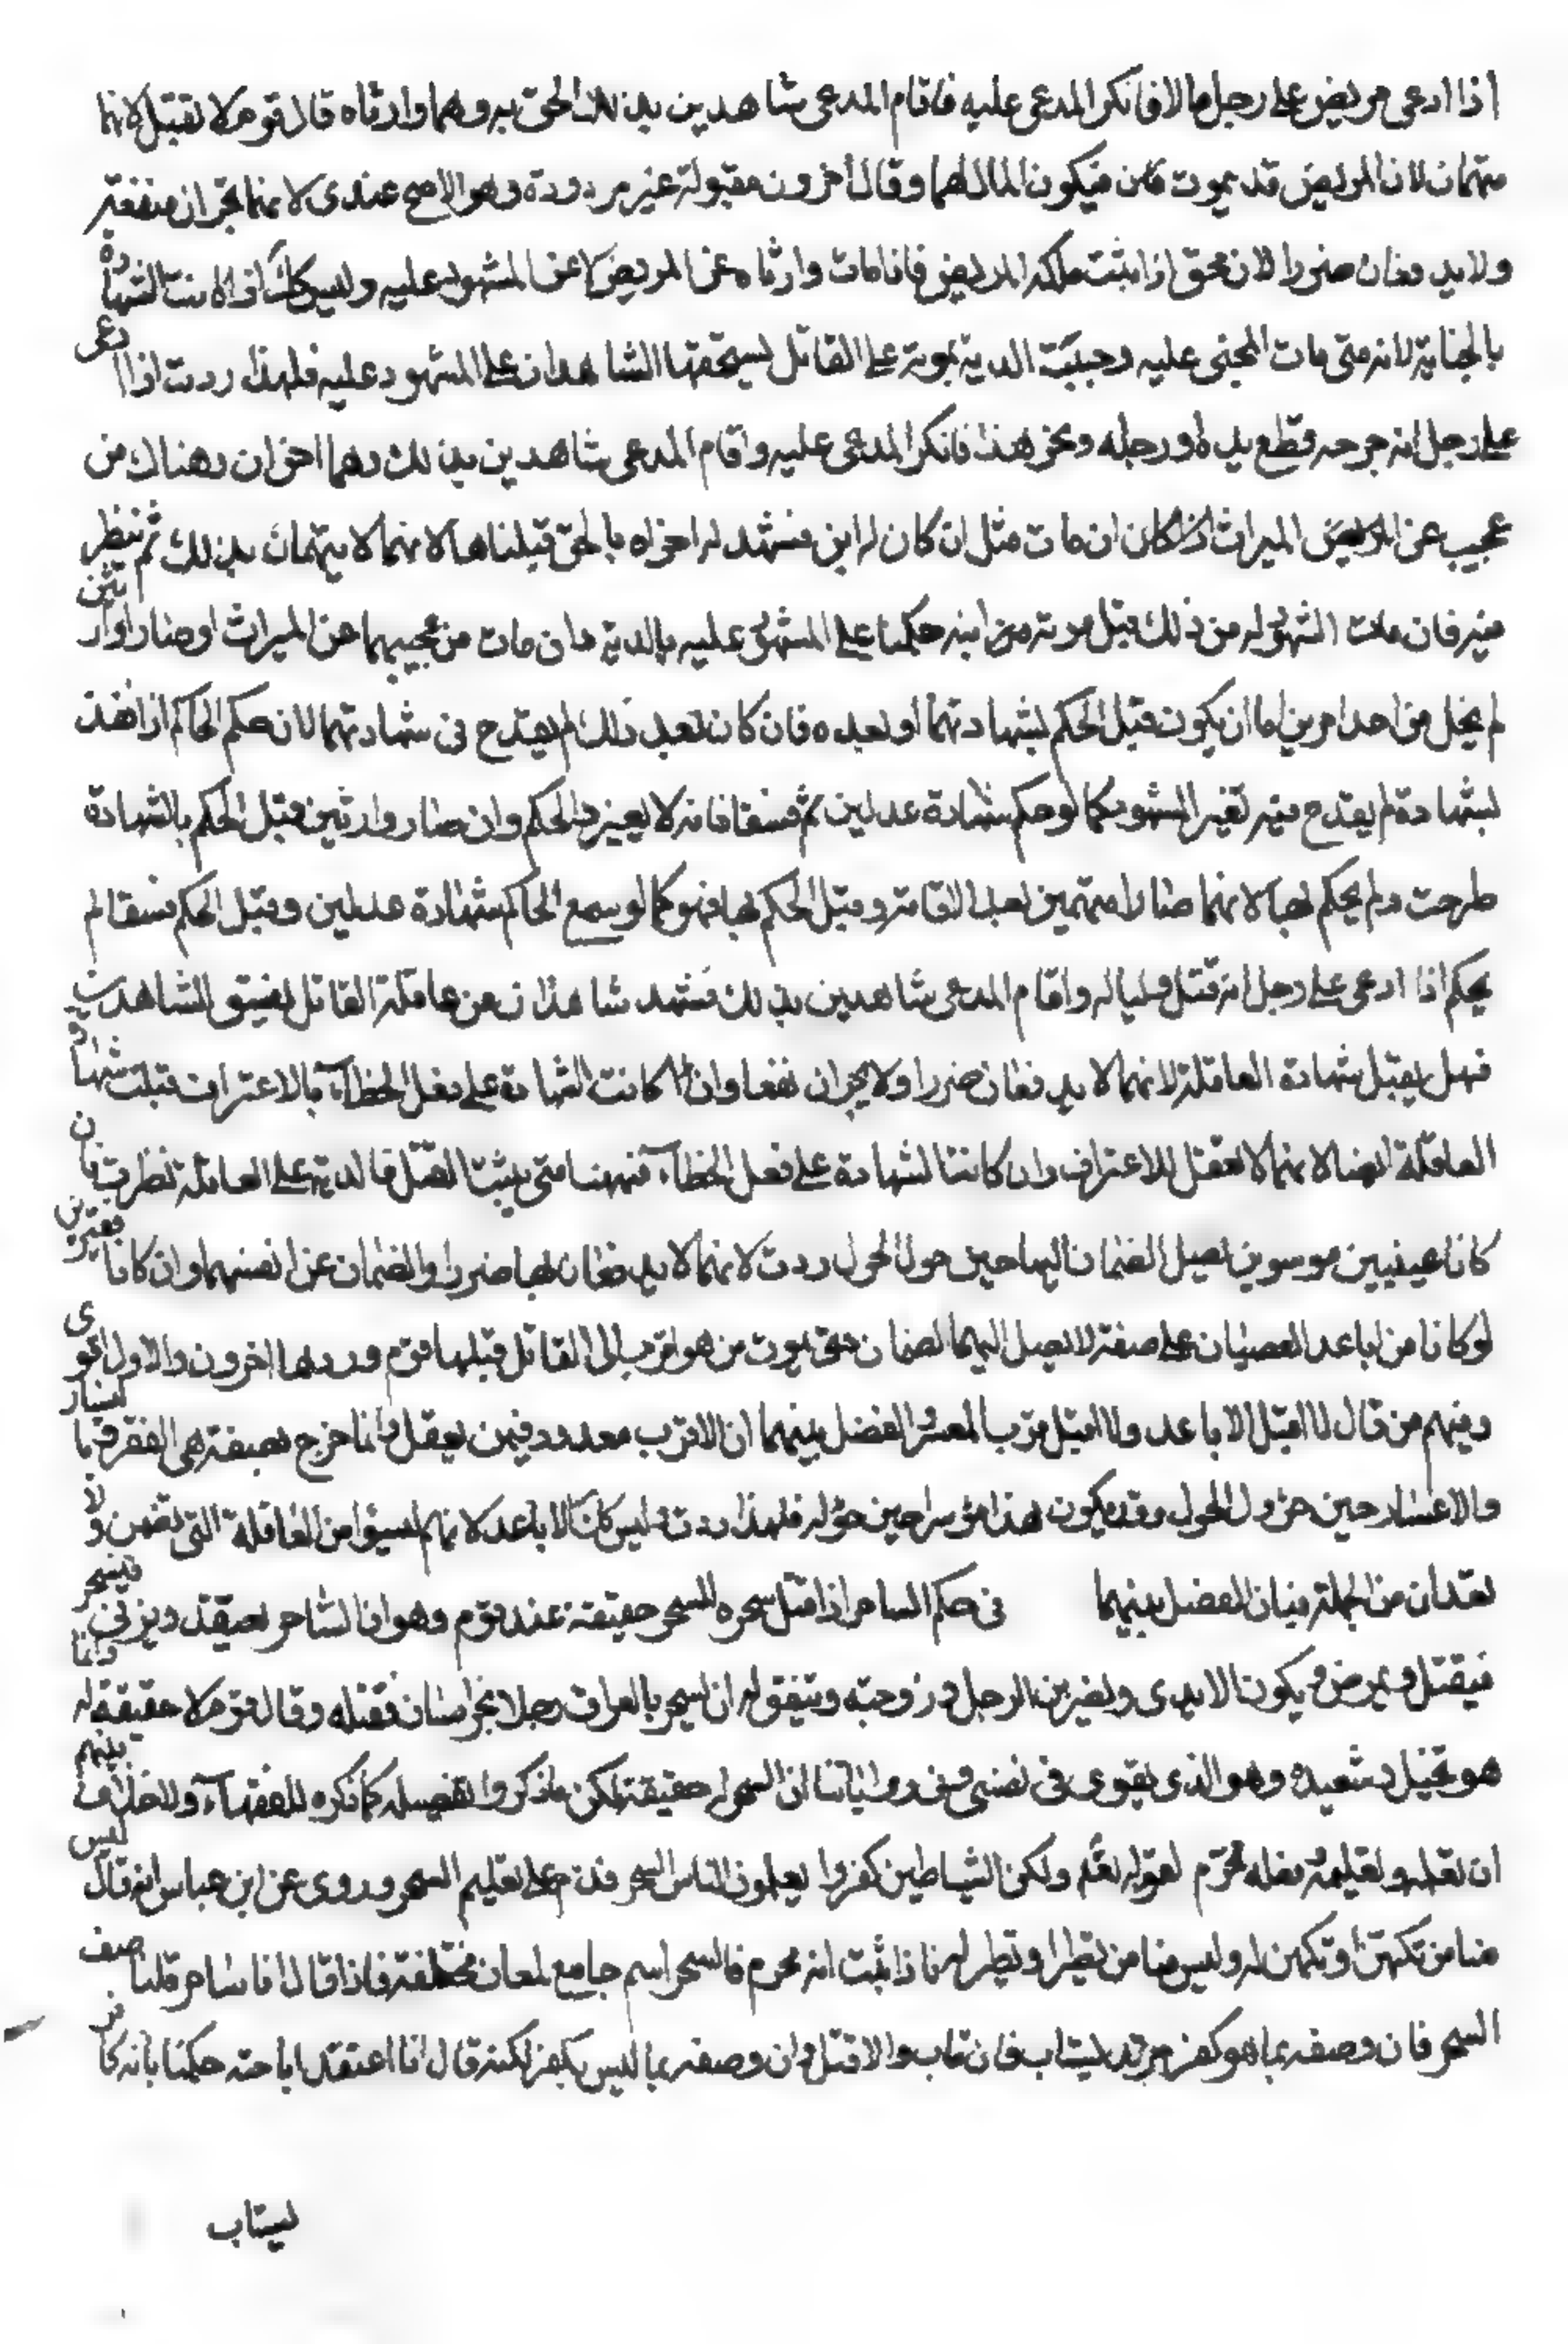 اذا ادعى مريض على رجل مالا فانكر المدعى عليه فاقام المدعى شاهدين بذلك الحق به وهما وارثاه قال قوم لا تقبل لانهما
متهمان لان المريض قد يموت فيكون المال لهما وقال آخرون مقبولة غير مردودة وهو الاصح عندى لانهما لا يجران منفعة
ولا يدفعان ضررا لان الحق اذا ثبت ملكه المريض فاذا مات وارثاه عن المريض لا عن المشهود عليه وليس كك اذا كانت الشهادة
بالجناية لانه متى مات المجنى عليه وجبت الدية بموته على القاتل يستحقها الشاهدان على المشهود عليه فلهذا ردت اذا ادعى
على رجل انه جرحه قطع يده او رجله ونحو هذا فانكر المدعى عليه واقام المدعى شاهدين بذلك وهما اخوان وهناك من
يحجب عن المريض الميراث اذا كان ان مات مثل ان كان له ابن فشهد له اخواه بالحق قبلناها لانهما لا يتهمان بذلك ثم ينظر
فيه فان مات المشهود له من ذلك قبل موته من ابنه حكمنا على المشهود عليه بالدية وان مات من يحجبهما عن الميراث او صارا وارثين
لم يخل من احد امرين اما ان يكون قبل الحكم بشهادتهما او بعده فان كان بعد ذلك لم يقدح فى شهادتهما لان حكم الحاكم اذا نفذ
بشهادة لم يقدح فيه تغير المشهود كما لو حكم بشهادة عدلين ثم فسقا فانه لا يغير الحكم وان صار وارثين قبل الحكم بالشهادة
طرحت ولم يحكم بها لانهما صارا متهمين بعد الاقامة وقبل الحكم بها فهو كما لو سمع الحاكم شهادة عدلين وقبل الحكم فسقا لم
يحكم اذا ادعى على رجل انه قتل وليا له واقام المدعى شاهدين بذلك فشهد شاهدان من عاقلة القاتل بفسق الشاهدين
فهل يقبل شهادة العاقلة لانهما لا يدفعان ضررا ولا يجران نفعا وان كانت الشهادة على فعل الخطاء بالاعتراف قبلت شهادة
العاقلة ايضا لانهما لا تعقل الاعتراف وان كانت الشهادة على فعل الخطاء فههنا متى يثبت القتل فالدية على العاقلة نظرت فان
كانا غنيين موسرين يصل الضمان اليها حين حول الحول ردت لانهما لا يدفعان بها ضررا والضمان عن انفسهما وان كانا فقيرين
لو كانا من اباعد العصبات على صفة لا يصل اليهما الضمان حتى يموت من هو اقرب الى القاتل قبلها قوم وردها اخرون والاول اقوى
ومنهم من قال لا اقبل الاباعد ولا اقبل قرب المعسر والفضل بينهما ان الاقرب معدود فيمن يعقل وانما خرج بصفة هى الفقر فاليسار
والاعسار حين حؤول الحول وقد يكون هذا مؤسرا حين حؤله فلهذا ردت وليس كك الاباعد لانهم ليسوا من العاقلة التى تضمن ولا
يعدان من الجملة فبان الفضل بينهما فى حكم الساحر اذا قتل سحره للسحر حقيقة عند قوم وهو ان الساحر يعقد ويرقى فيسحر
فيقتل ويمرض ويكون الايدى ويضر بين الرجل وزوجته ويتفق له ان يسحر بالعراق رجلا بخراسان فقتله وقال قوم لا حقيقة له وانما
هو تخيل وشعبده وهو الذى يقوى فى نفسى وفى رواياتنا ان السحر له حقيقة لكن ما ذكروا تفصيله كما ذكره الفقهاء ولا خلاف بينهم
ان تعلمه وتعليمه وفعله محرم لقوله تعلى ولكن الشياطين كفروا يعلمون الناس السحر فذم على تعليم السحر وروى عن ابن عباس انه قال ليس
منا من تكهن او تكهن له وليس منا من تطير او تطير له فاذا ثبت انه محرم فالسحر اسم جامع لمعان مختلفة فاذا قال انا ساحر قلنا صف
السحر فان وصفه بما هو كفر مرتد يستتاب فان تاب والا قتل وان وصفه بما ليس بكفر لكنه قال انا اعتقد اباحته حكمنا بانه كافر
يستتاب